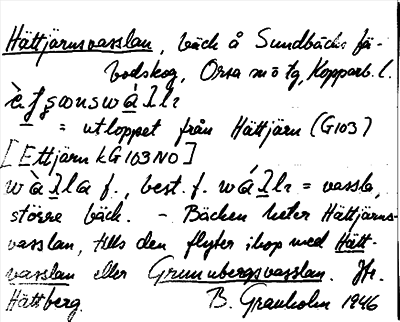 Hättjärnsvasslan, bäck å Sundbäcks fä-
bodskog, Orsa sn o tg, Kopparb. l.
= utloppet från Hättjärn (G103)
[Ettjärn kG103NO]
wàlla f., best. f. = vassla,
större bäck. – Bäcken heter Hättjärns-
vasslan, tills den flyter ihop med Hätt-
vasslan eller Grunubergsvasslan. Jfr.
Hättberg. B. Granholm 1946